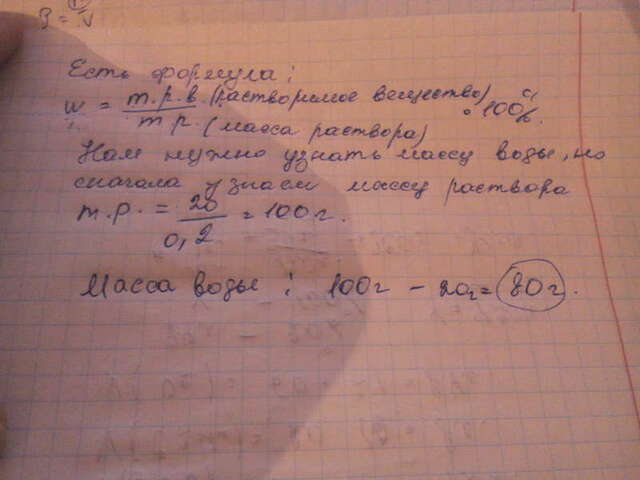 Есть формула:
w = m.р.в. (растворимое вещество) / m р. (масса раствора) · 100%
Нам нужно узнать массу воды, но
сначала узнаем массу раствора
m.р. = 20 / 0,2 = 100г.
Масса воды : 100г - 20г = 80г.